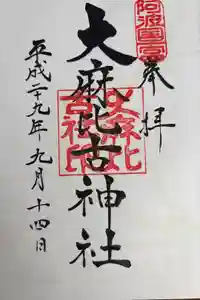 阿波国一宮
奉拝
大麻比古神社
大麻比古神社印
平成二十九年九月十四日